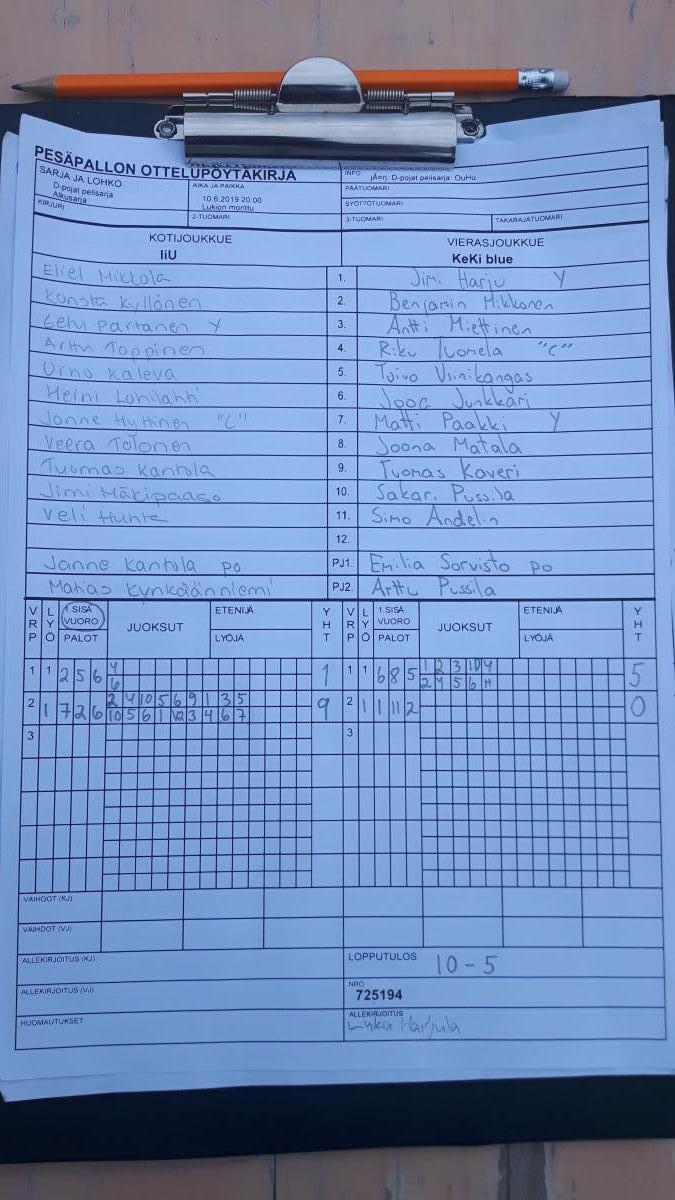 PESÄPALLON OTTELUPÖYTÄKIRJA
SARJA JA LOHKO
D-pojat pelisarja
Alkusarja
KIRJURI
AIKA JA PAIKKA
10.6.2019 20:00
Lukion monttu
2-TUOMARI
INFO
jÄorj. D-pojat pelisarja: OuHu
PÄÄTUOMARI
SYÖTTÖTUOMARI
3-TUOMARI TAKARAJATUOMARI
KOTIJOUKKUE VIERASJOUKKUE
IiU KeKi blue
Eliel Mikkola 1. Jimi Harju Y
Konsta Kyllönen 2. Benjamin Mikkonen
Eetu Partanen Y 3. Antti Miettinen
Arttu Toppinen 4. Riku Tuomela "C"
Urho Kaleva 5. Toivo Viinikangas
Heini Lohilahti 6. Joona Junkkari
Janne Hyttinen "C" 7. Matti Paakki Y
Veera Tolonen 8. Joona Matala
Tuomas Kantola 9. Tuomas Kaveri
Jimi Mäkipaaso 10. Sakari Pussila
Veli Huhta 11. Simo Andelin
12.
Janne Kantola po PJ1. Emilia Sorvisto po
Matias Kynkäänniemi PJ2. Arttu Pussila
VRP LYÖ 1.SISÄ VUORO PALOT JUOKSUT ETENIJÄ LYÖJÄ YHT VRP LYÖ 1.SISÄ VUORO PALOT JUOKSUT ETENIJÄ LYÖJÄ YHT
1 1 2 5 6 4 1 1 1 6 8 5 1 2 3 10 4 5
6 2 4 5 6 11
2 1 7 2 6 2 4 10 5 6 9 1 3 5 9 2 1 1 11 2 0
10 5 6 1 12 3 4 6 7
3 3
VAIHDOT (KJ)
VAIHDOT (VJ)
ALLEKIRJOITUS (KJ) LOPPUTULOS 10-5
ALLEKIRJOITUS (VJ) NRO
725194
HUOMAUTUKSET ALLEKIRJOITUS
Harjula